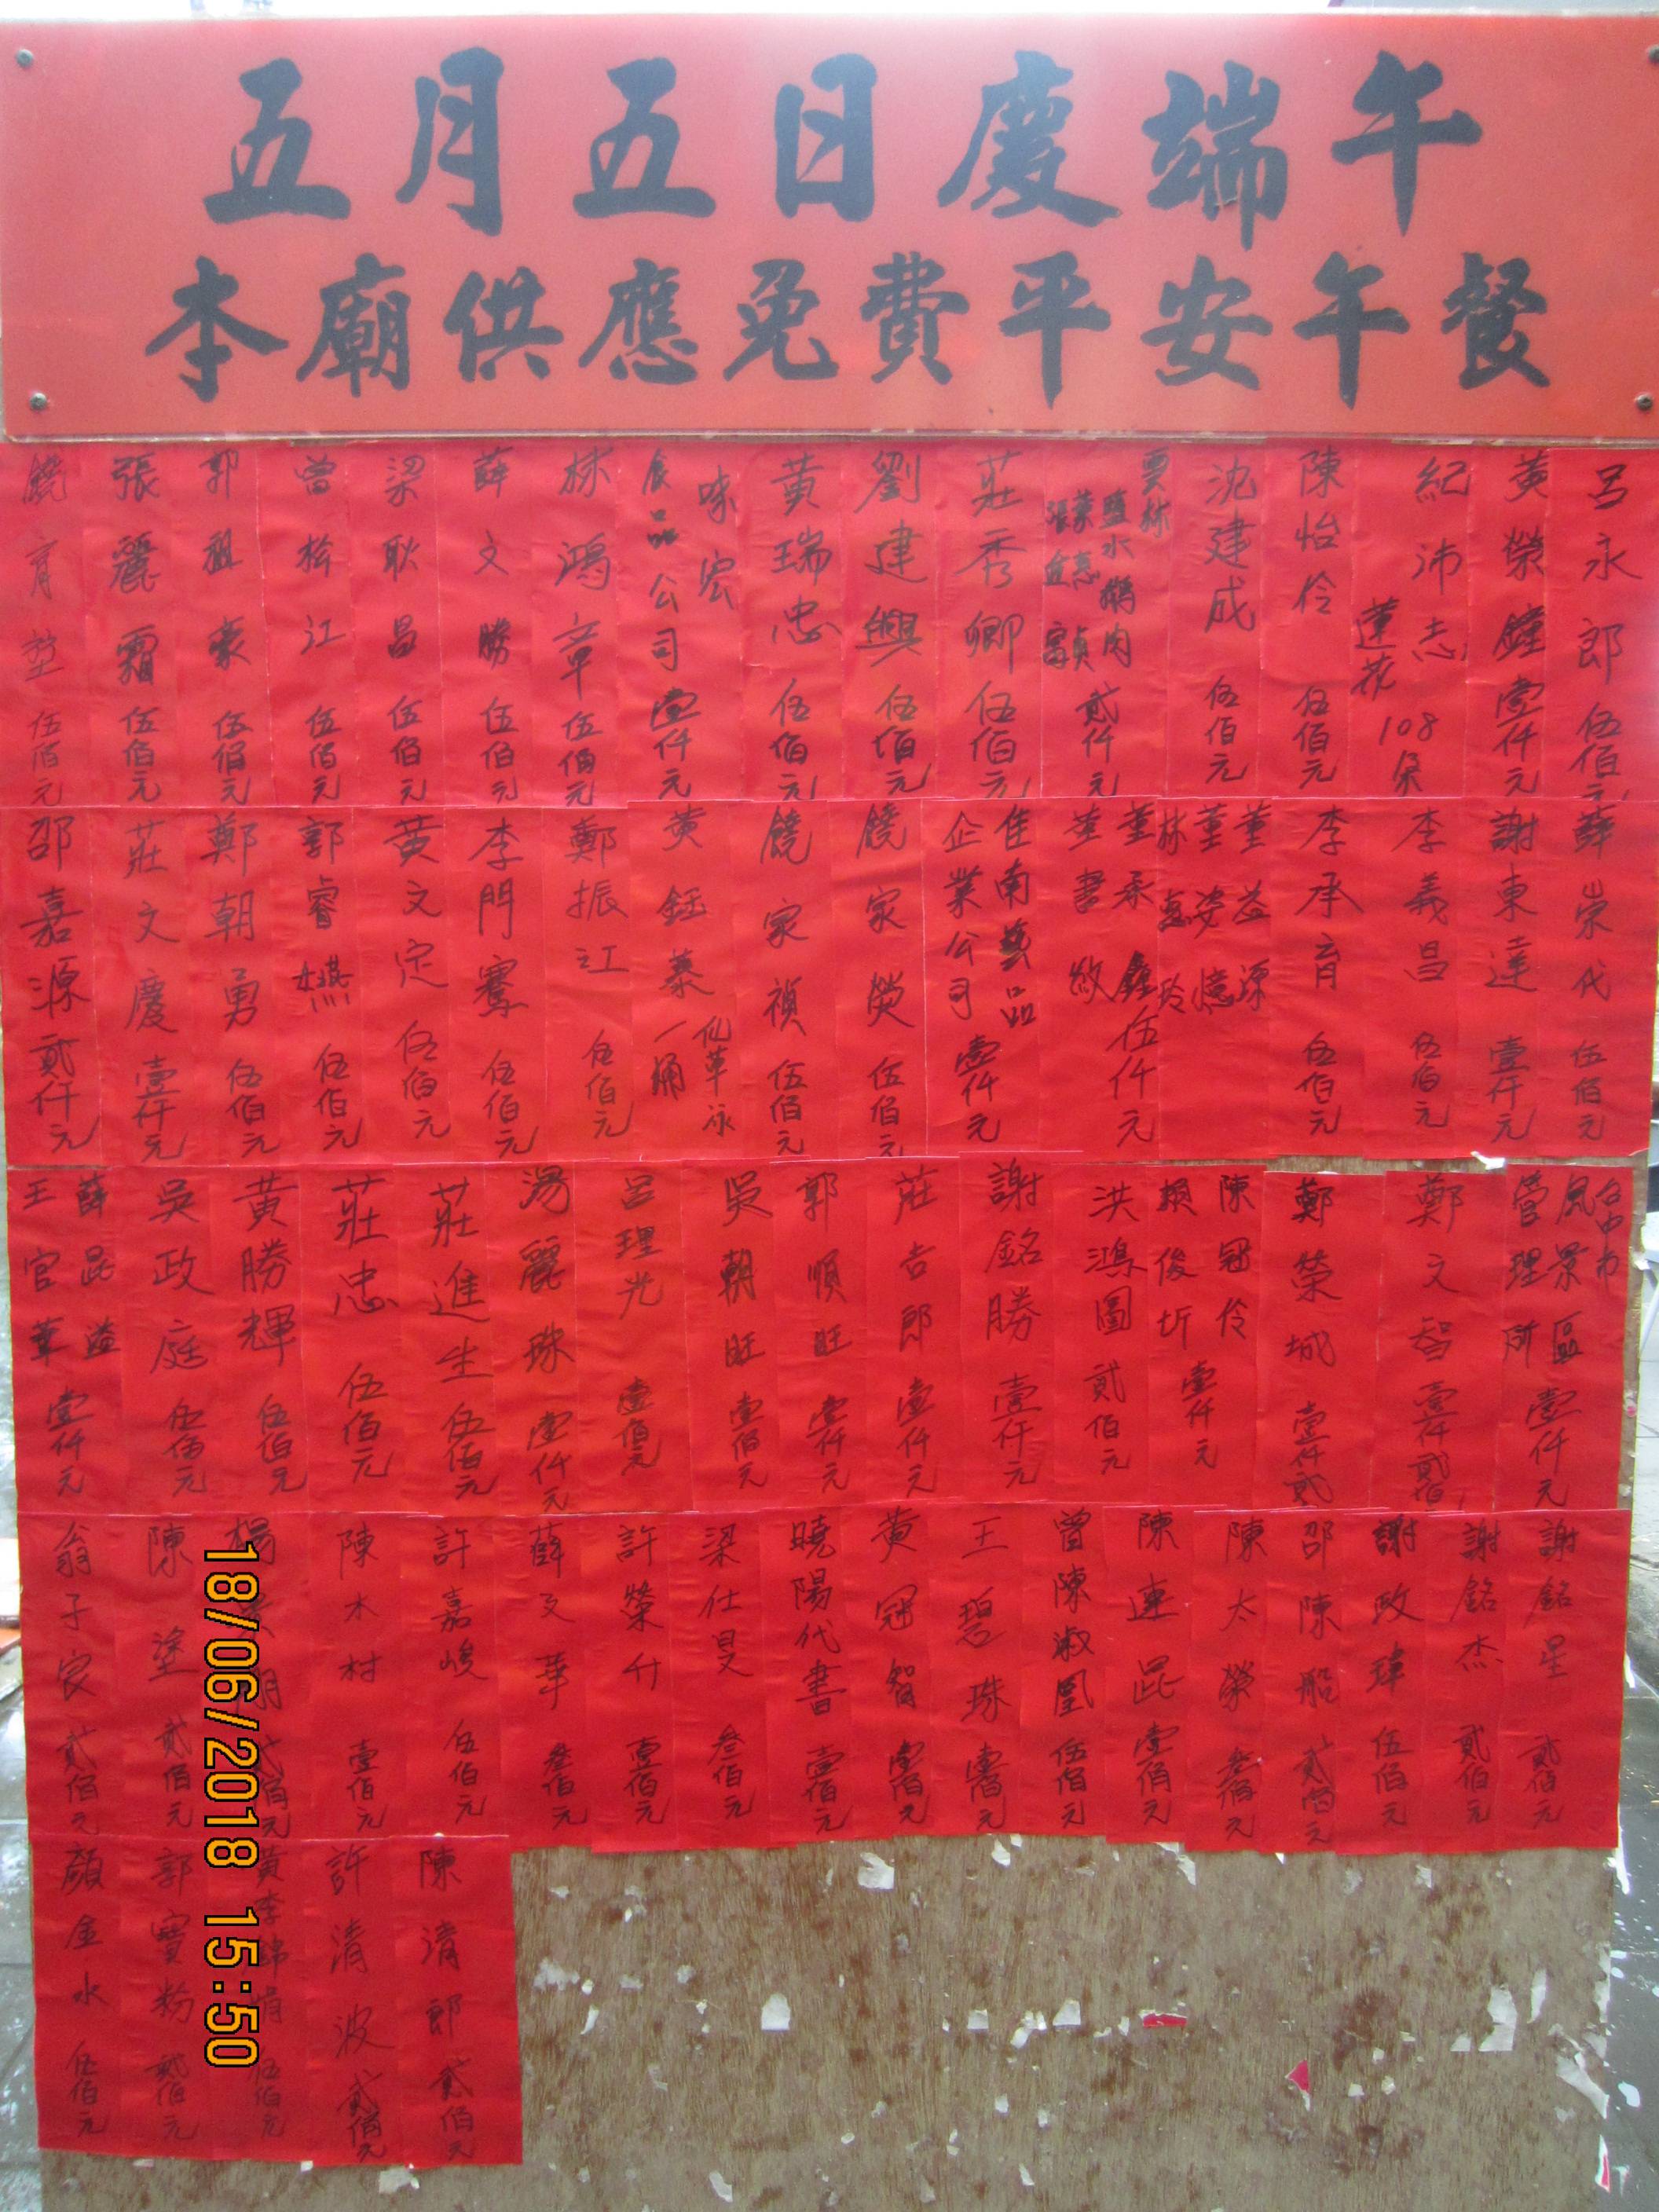 五月五日慶端午
本廟供應免費平安午餐
呂永郎 伍佰元
黃榮鐘 壹仟元
紀沛志 蓮花 108朵
陳怡伶 伍佰元
沈建成 伍佰元
鹽水鵝肉 貳仟元
莊秀卿 伍佰元
劉建興 伍佰元
黃瑞忠 伍佰元
味宏食品公司 壹仟元
林鴻章 伍佰元
薛文勝 伍佰元
梁耿昌 伍佰元
曾松江 伍佰元
郭祖豪 伍佰元
張麗霜 伍佰元
饒育 伍佰元
薛崇代 伍佰元
謝東達 壹仟元
李義昌 伍佰元
李承育 伍佰元
董益源
董姿憶
林惠玲
董承鑫
董書 伍仟元
佳南藝品企業公司 壹仟元
饒家熒 伍佰元
饒家禎 伍佰元
黃鈺蓁 一桶
鄭振江 伍佰元
李門騫 伍佰元
黃文定 伍佰元
郭睿 伍佰元
鄭朝勇 伍佰元
莊文慶 壹仟元
邵嘉源 貳仟元
台中市風景區管理所 壹仟元
鄭文智 壹仟貳佰
鄭榮城 壹仟貳
陳冠伶
賴俊圻 壹仟元
洪鴻圖 貳佰元
謝銘勝 壹仟元
莊吉郎 壹仟元
郭順旺 壹仟元
吳朝旺 壹佰元
呂理光 壹佰元
湯麗珠 壹仟元
莊進生 伍佰元
莊忠 伍佰元
黃勝輝 伍佰元
吳政庭 伍佰元
薛昆益
王官華 壹仟元
謝銘星 貳佰元
謝銘杰 貳佰元
謝政瑋 伍佰元
邵陳船 貳佰元
陳太榮 叁佰元
陳連昆 壹佰元
曾陳淑鳳 伍佰元
王碧珠 壹佰元
黃冠智 壹佰元
曉陽代書 壹佰元
梁仕旻 叁佰元
許榮升 壹佰元
薛文華 叁佰元
許嘉峻 伍佰元
陳木村 壹佰元
楊 明 貳佰元
陳塗 貳佰元
翁子良 貳佰元
陳清郎 貳佰元
許清波 貳佰元
黃李錦娟 伍佰元
郭寶粉 貳佰元
顏金水 伍佰元
18/06/2018 15:50